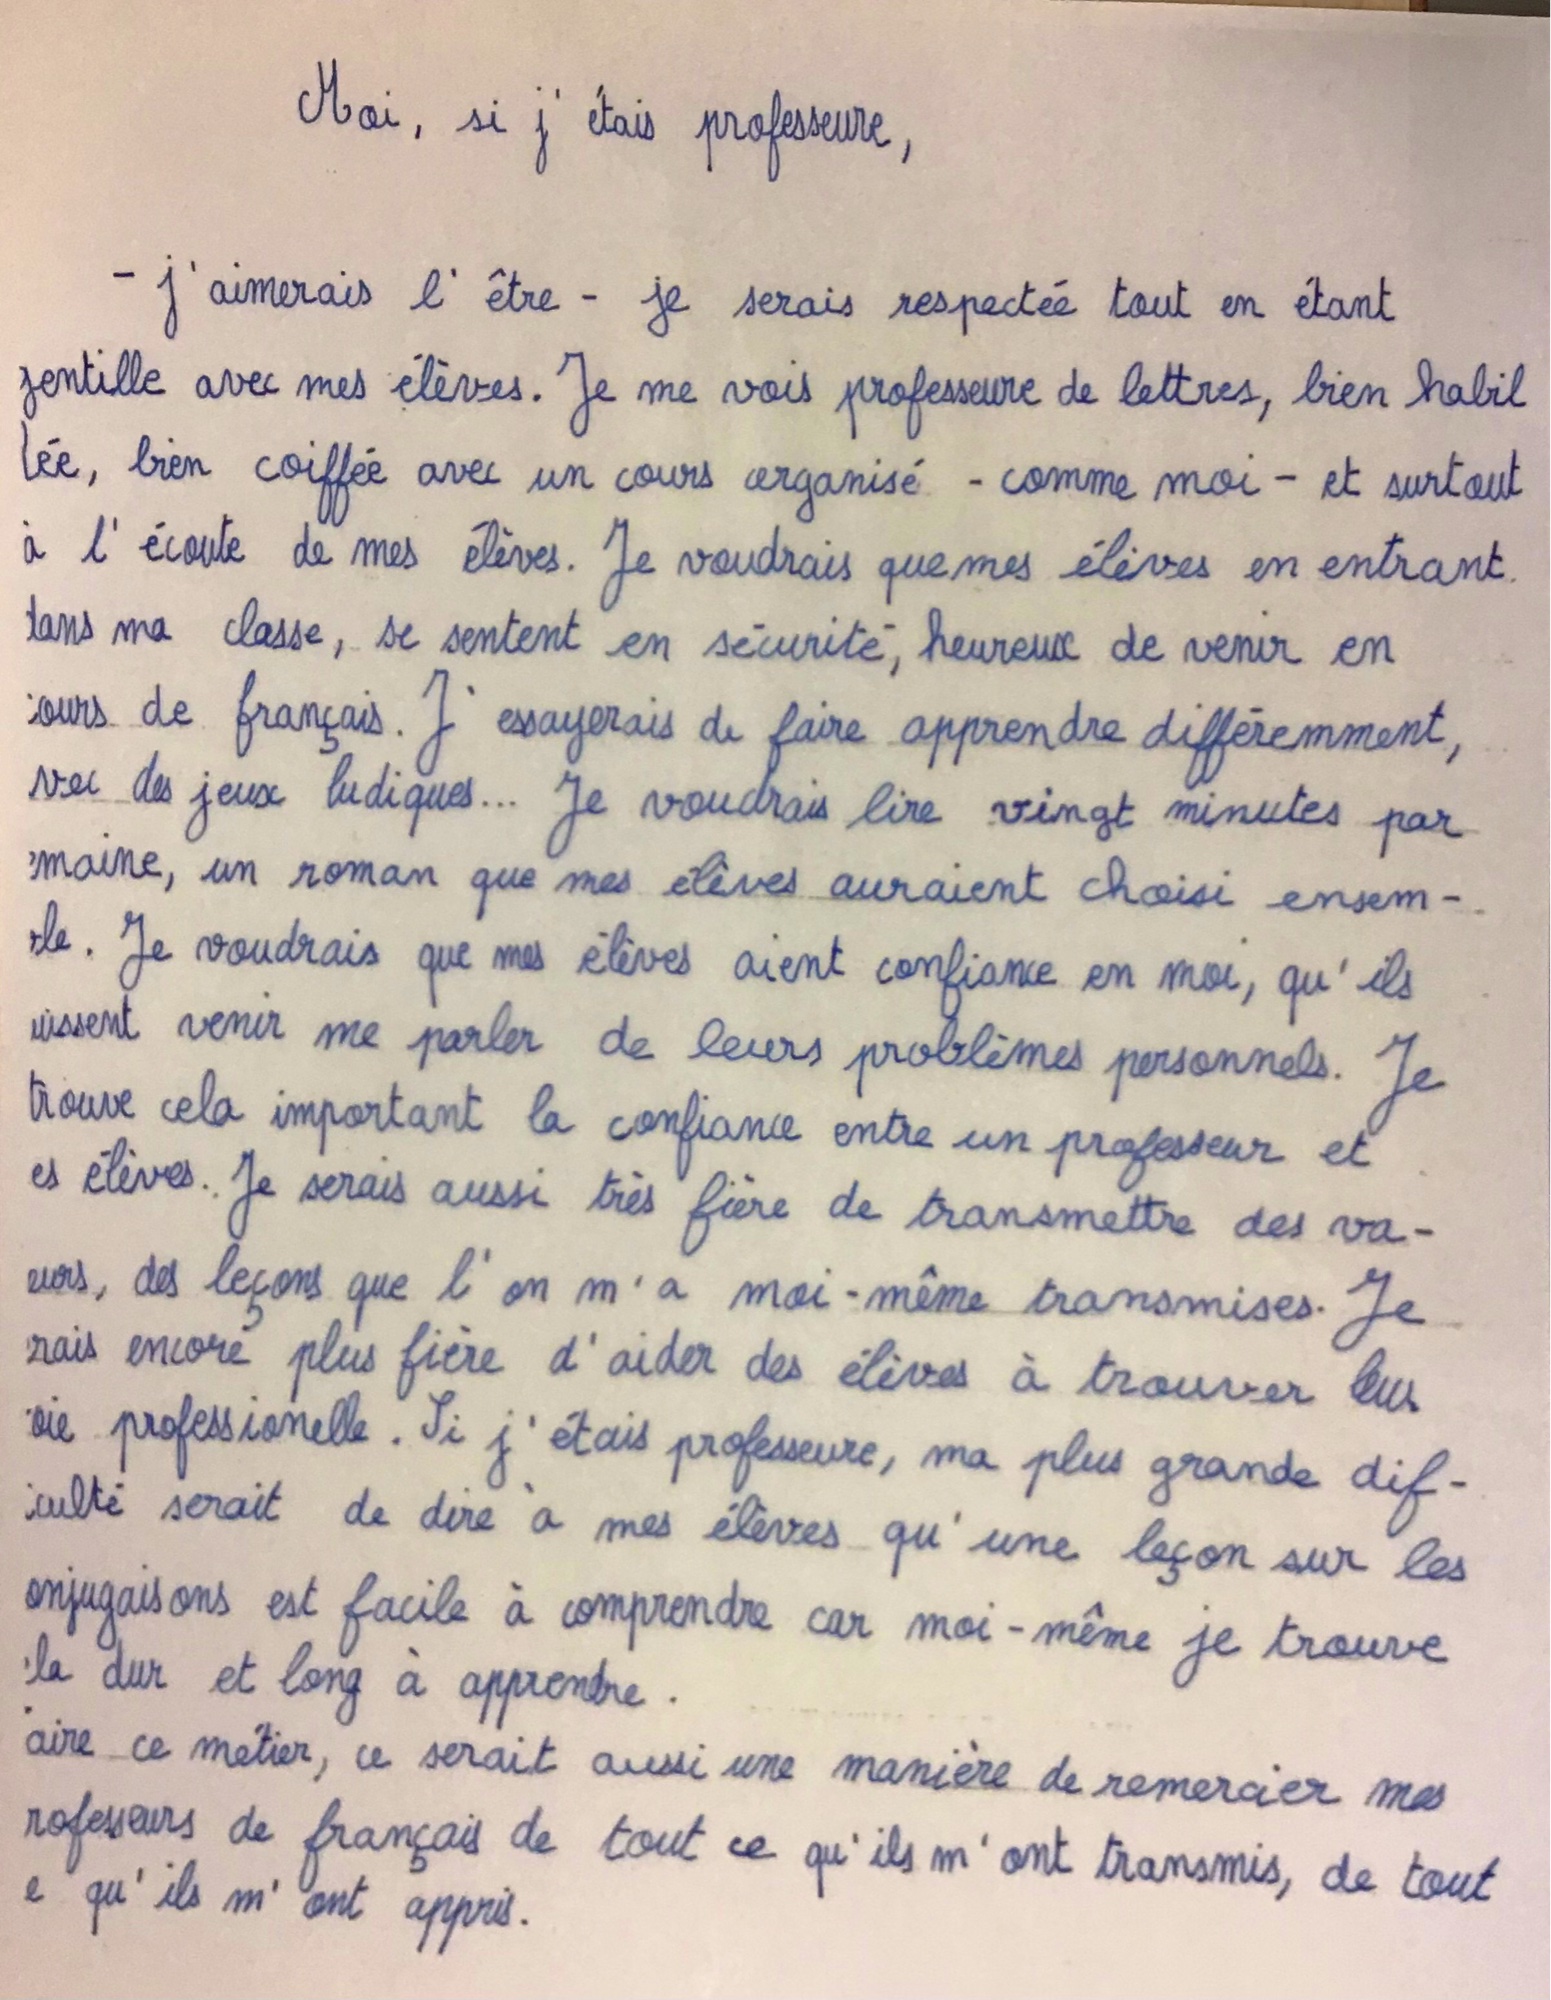 Moi, si j'étais professeure,
- j'aimerais l'être - je serais respectée tout en étant
gentille avec mes élèves. Je me vois professeure de lettres, bien habil
lée, bien coiffée avec un cours organisé - comme moi - et surtout
à l'écoute de mes élèves. Je voudrais que mes élèves en entrant
dans ma classe, se sentent en sécurité, heureux de venir en
cours de français. J'essayerais de faire apprendre différemment,
avec des jeux ludiques... Je voudrais lire vingt minutes par
emaine, un roman que mes élèves auraient choisi ensem-
ble. Je voudrais que mes élèves aient confiance en moi, qu'ils
uissent venir me parler de leurs problèmes personnels. Je
trouve cela important la confiance entre un professeur et
es élèves. Je serais aussi très fière de transmettre des va-
eurs, des leçons que l'on m'a moi-même transmises. Je
rais encore plus fière d'aider des élèves à trouver leur
oie professionelle. Si j'étais professeure, ma plus grande dif-
iculté serait de dire à mes élèves qu'une leçon sur les
onjugaisons est facile à comprendre car moi-même je trouve
la dur et long à apprendre.
aire ce métier, ce serait aussi une manière de remercier mes
rofesseurs de français de tout ce qu'ils m'ont transmis, de tout
e qu'ils m'ont appris.